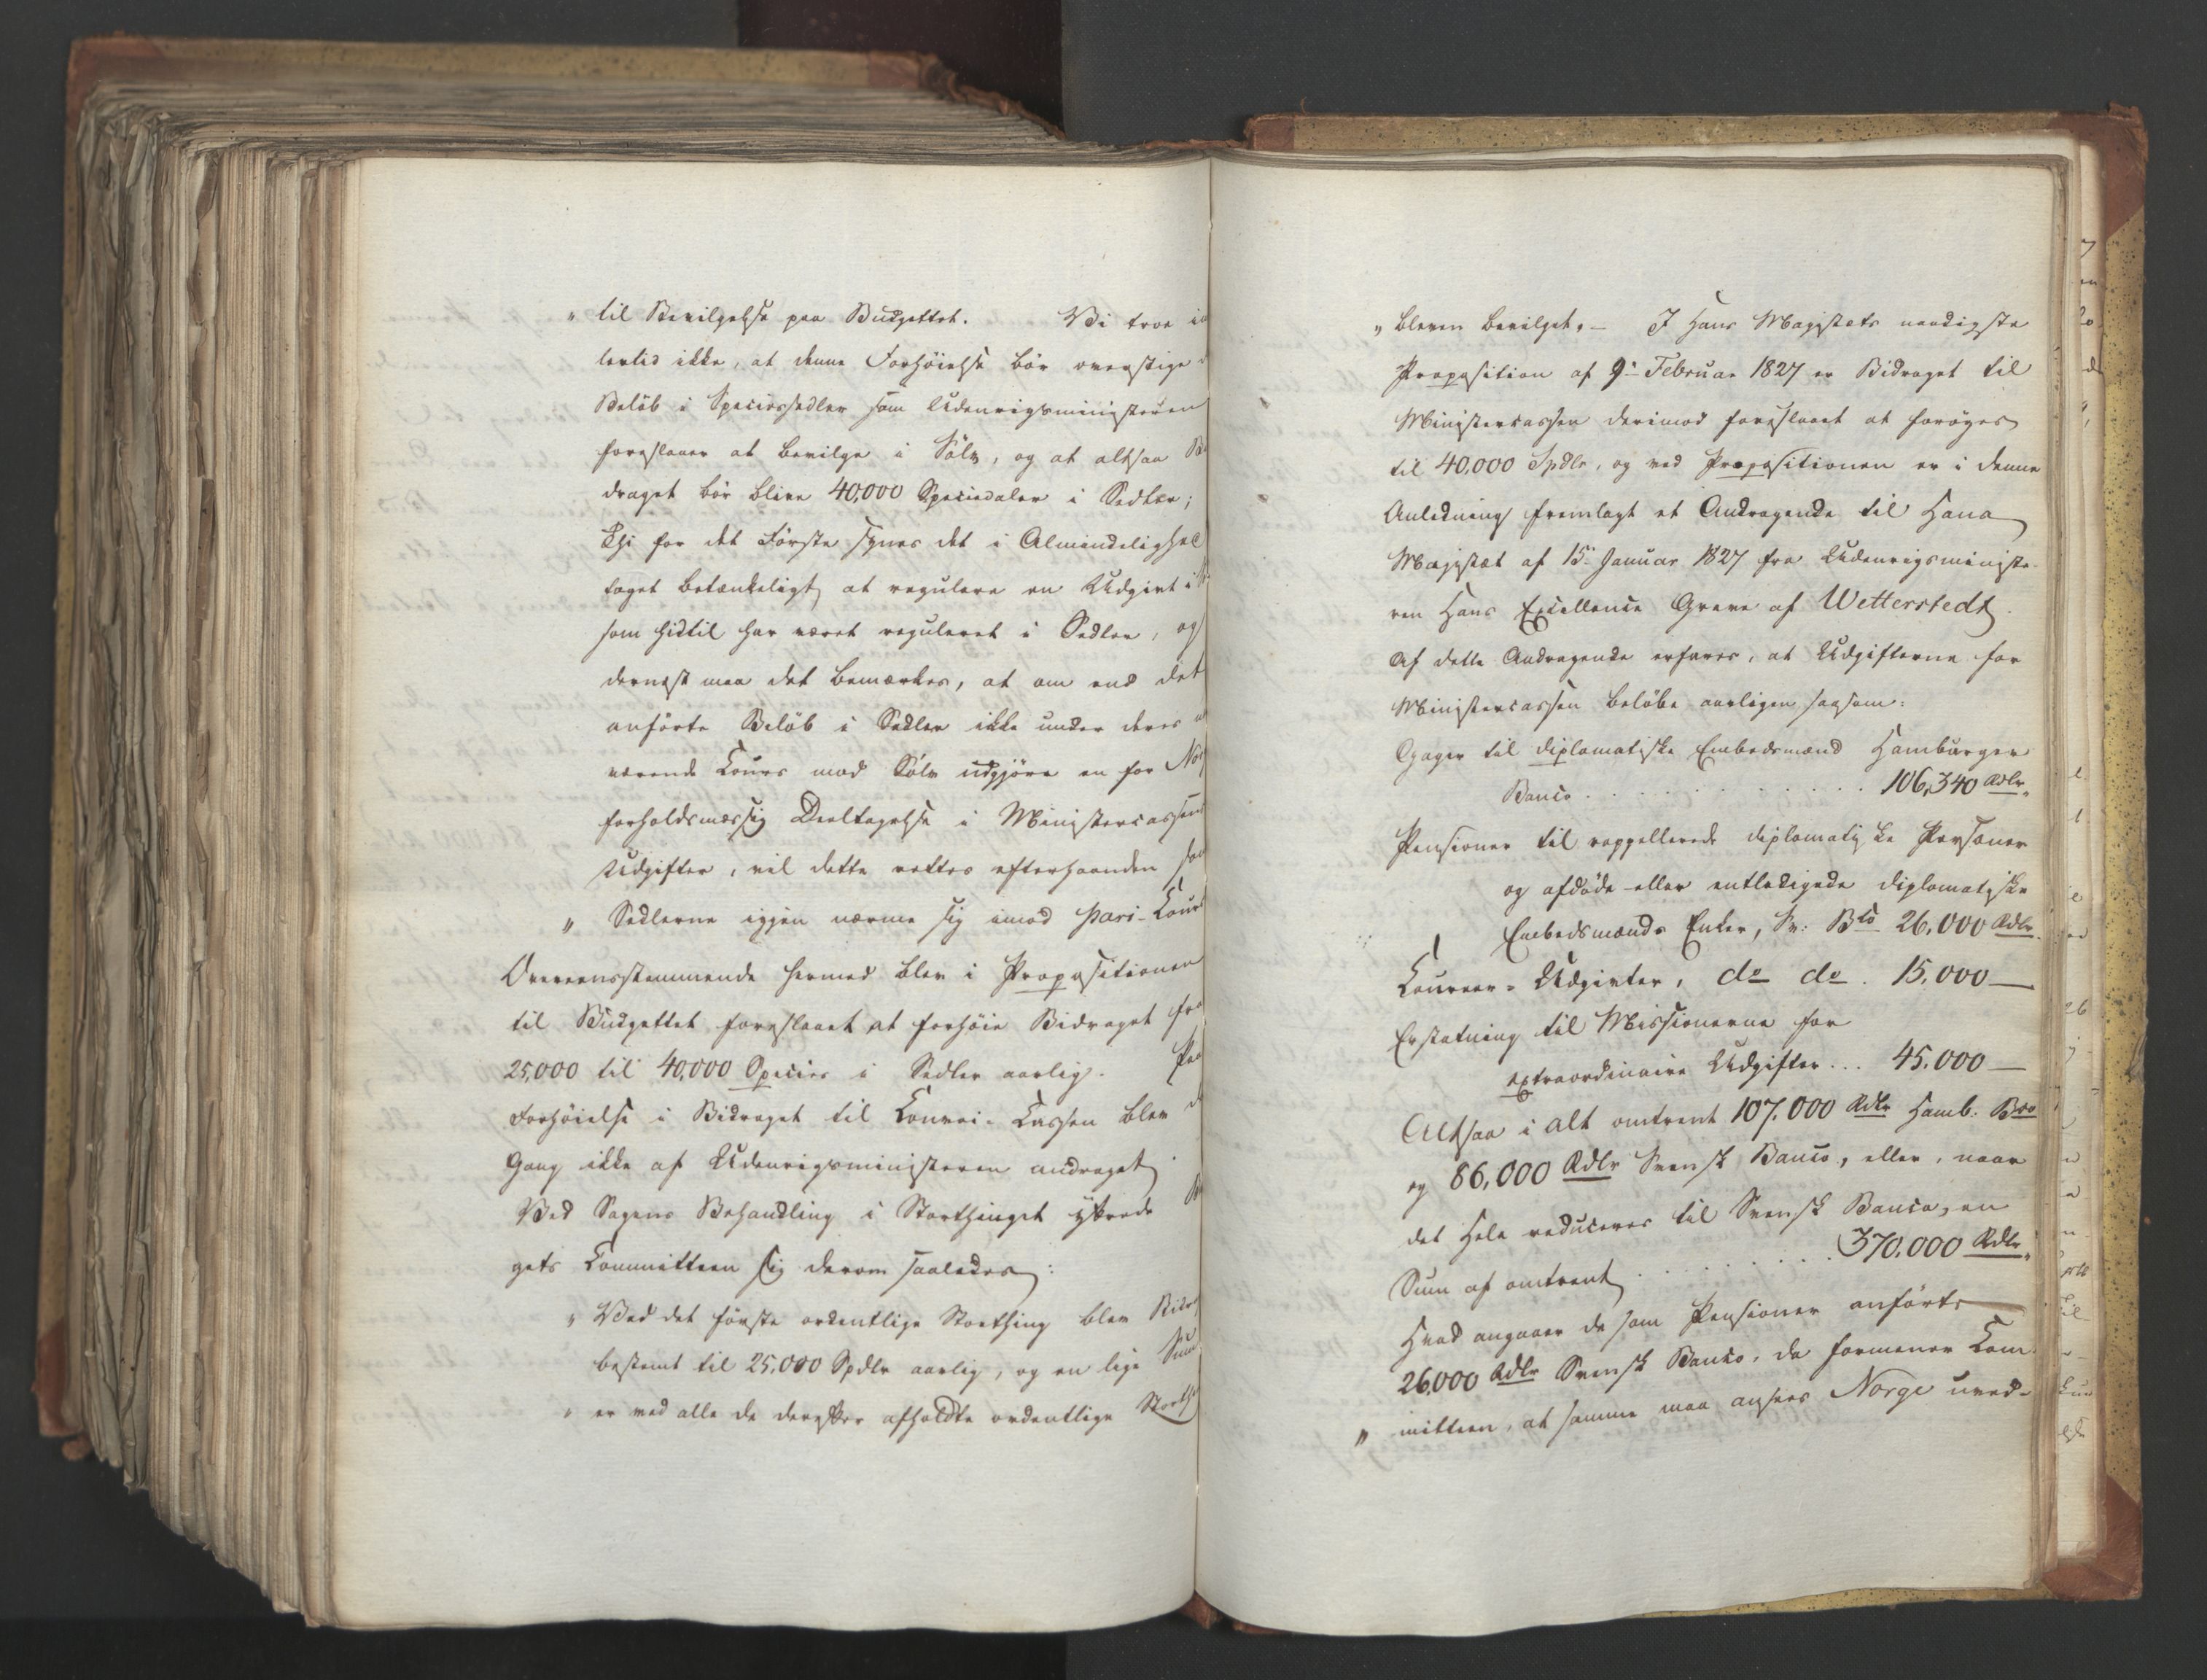 " til Bevilgelse paa Budgettet. Vi troe im
lertid ikke, at denne Forhöielse bör overstige d
Belöb i Speciessedler som Udenrigsministeren
foreslaaer at bevilge i Sölv, og at altsaa Bi
draget bör blive 40,000 Speciedaler i Sedler;
thi for det Förste synes det i Almindelighed
taget betænkeligt at regulere en Udgivt i S
som hidtil har været reguleret i Sedler, og
dernæst maa det bemærkes, at om end det
anförte Belöb i Sedler ikke under deres n
værende Cours mod Sölv udgjöre en for Nor
forholdsmæssig Deeltagelse i Ministercassens
Udgifter, vil dette rettes efterhaanden som
" Sedlerne igjen nærme sig imod pari-Cours
Overeensstemmende hermed blev i Propositionen
til Budgettet foreslaaet at forhöie Bidraget fra
25,000 til 40,000 Species i Sedler aarlig. Paa
Forhöielse i Bidraget til Convoi-Cassen blev d
Gang ikke af Udenrigsministeren andraget.
Ved Sagens Behandling i Storthinget yttrede B
gets Committeen sig derom saaledes:
" Ved det förste ordentlige Storthing blev Bidra
bestemt til 25,000 Spdlr aarlig, og en lige Sum
" er ved alle de derefter afholdte ordentlige Storth
" bleven bevilget. - I Hans Majestæts naadigste
Proposition af 9de Februar 1827 er Bidraget til
Ministercassen derimod foreslaaet at foröges
til 40,000 Spdlr, og ved Propositionen er i denne
Anledning fremlagt et Andragende til Hans
Majestæt af 15de Januar 1827 fra Udenrigsministe-
ren Hans Excellence Greve af Wetterstedt.
Af dette Andragende erfares, at Udgifterne for
Ministercassen belöbe aarligen saasom:
Gager til diplomatiske Embedsmænd Hamburger
Banco . . . . . . . . . . 106,340 Rdlr.
Pensioner til rappellerede diplomatiske Personer
og afdöde eller entledigede diplomatiske
Embedsmænds Enker, Sv: Bco 26,000 Rdlr.
Coureer-Udgivter, do do . 15,000 —
Erstatning til Missionerne for
extraordinaire Udgifter ... 45,000 —
Altsaa i alt omtrent 107,000 Rdlr Hamb. Bco
og 86,000 Rdlr Svensk Banco, eller, naar
det Hele reduceres til Svensk Banco, en
Sum af omtrent . . . . . . . 370,000 Rdlr.
Hvad angaaer de som Pensioner anförte
26,000 Rdlr Svensk Banco, da formener Com-
" mitteen, at samme maa ansees Norge uved-